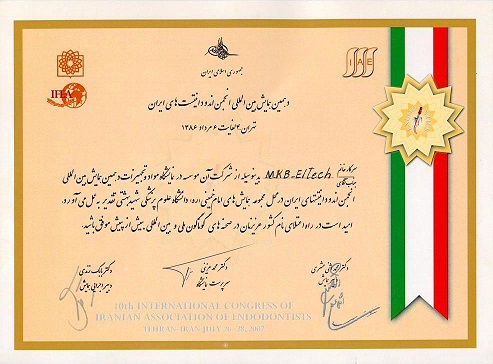 جمهوری اسلامی ایران
IFEA
IAE
دهمین همایش بین المللی انجمن اندودانتیست های ایران
تهران ۴ لغایت ۶ مرداد ۱۳۸۶
سرکار خانم
جناب آقای
M.K.B-ElTech بدینوسیله از شرکت آن موسسه در نمایشگاه مواد و تجهیزات دهمین همایش بین المللی
انجمن اندودانتیستهای ایران در محل مجموعه همایش های امام خمینی (ره) دانشگاه علوم پزشکی شهید بهشتی تقدیر به عمل می آورد.
امید است در راه اعتلای نام کشور عزیزمان در صحنه های گوناگون ملی و بین المللی بیش از پیش موفق باشید.
دکتر محمد عزیزی
سرپرست نمایشگاه
دکتر بابک زندی
دبیر اجرایی همایش
10th INTERNATIONAL CONGRESS OF
IRANIAN ASSOCIATION OF ENDODONTISTS
TEHRAN-IRAN JULY 26-28, 2007